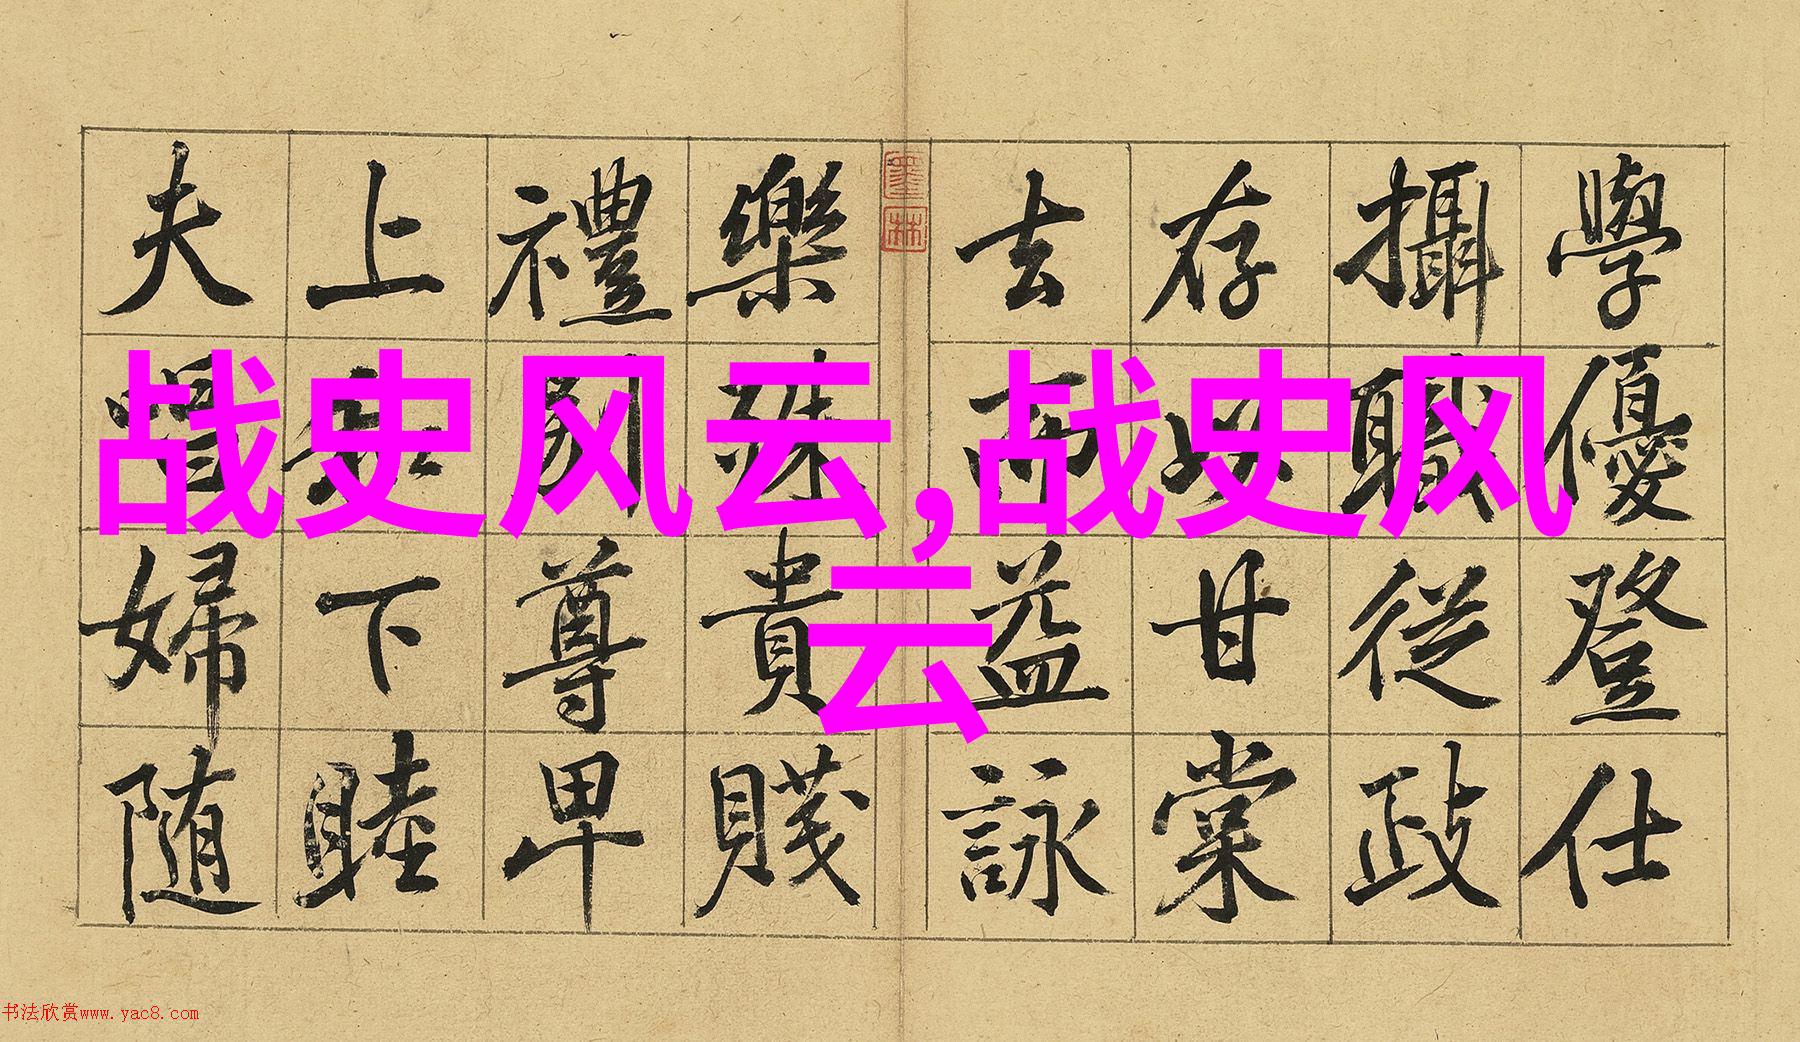 學優登仕
攝職從政
存以甘棠
去而益詠
樂殊貴賤
禮別尊卑
上和下睦
夫唱婦随
墨林
战史风云,战史风
云
书法欣赏www.yac8.com